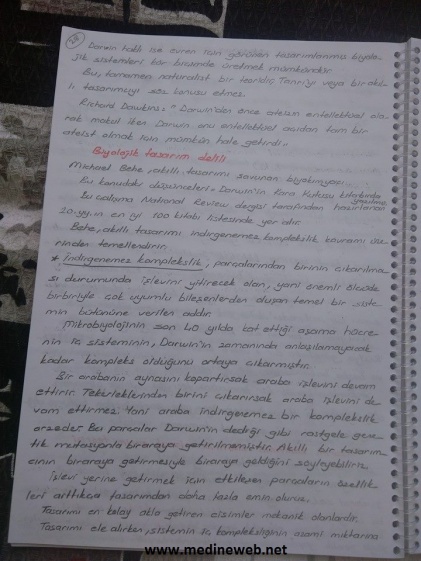 28
Darwin haklı ise evren için görülen tasarımlanmış biyolo-
jik sistemleri kör biçimde üretmek mümkündür.
Bu, tamamen naturalist bir teoridir. Tanrı'yı veya bir akıl-
lı tasarımcıyı söz konusu etmez.
Richard Dawkins: " Darwin'den önce ateizm entellektüel ola-
rak makul iken Darwin onu entellektüel açıdan tam bir
ateist olmak için mümkün hale getirdi"
Biyolojik tasarım delili
Michael Behe, akıllı tasarımı savunan biyokimyacı.
Bu konudaki düşünceleri Darwin'in Kara Kutusu kitabında
yayınlamış
Bu çalışma National Review dergisi tarafından hazırlanan
20.yy.ın en iyi 100 kitabı listesinde yer alır.
Behe, akıllı tasarımı indirgenemez komplekslik kavramı üze-
rinden temellendirir.
* İndirgenemez komplekslik, parçalarından birinin çıkarılma-
sı durumunda işlevini yitirecek olan, yani önemli ölçüde
birbiriyle çok uyumlu bileşenlerden oluşan temel bir siste-
min bütününe verilen addır.
Mikrobiyolojinin son 40 yılda kat ettiği aşama hücre-
nin iç sisteminin, Darwin'in zamanında anlaşılamayacak
kadar kompleks olduğunu ortaya çıkarmıştır.
Bir arabanın aynasını kopartırsak araba işlevini devam
ettirir. Tekerleklerinden birini çıkarırsak araba işlevini de-
vam ettirmez. Yani araba indirgenemez bir komplekslik
arzeder. Bu parçalar Darwin'in dediği gibi rastgele gene-
tik mutasyonla biraraya getirilmemiştir. Akıllı bir tasarım-
cının biraraya getirmesiyle biraraya geldiğini söyleyebiliriz.
İşlevi yerine getirmek için etkileşen parçaların özellik-
leri arttıkça tasarımdan daha fazla emin oluruz.
Tasarımı en kolay akla getiren cisimler mekanik olanlardır.
Tasarımı ele alırken, sistemin iç kompleksliğinin azami miktarına
www.medineweb.net